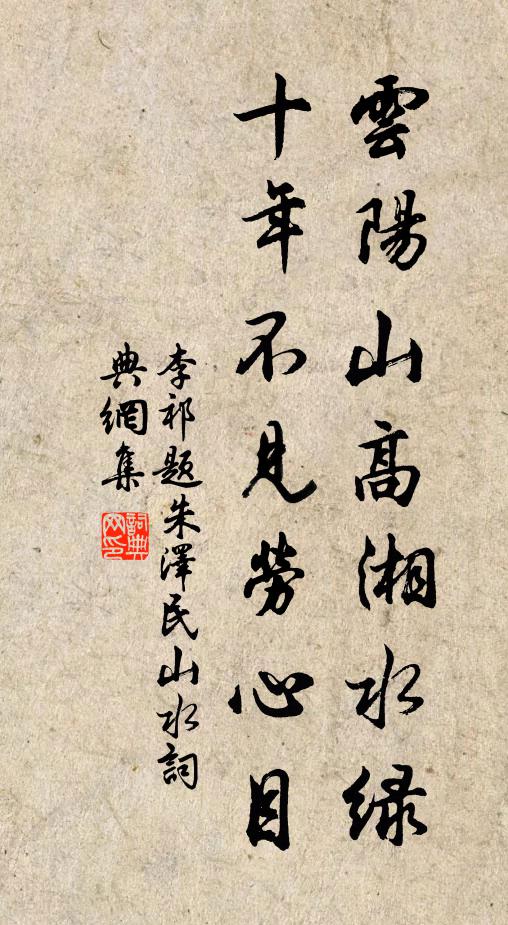 雲陽山高湘水綠
十年不見勞心目
李祁題朱澤民山水詞
典網集
詞典
网印